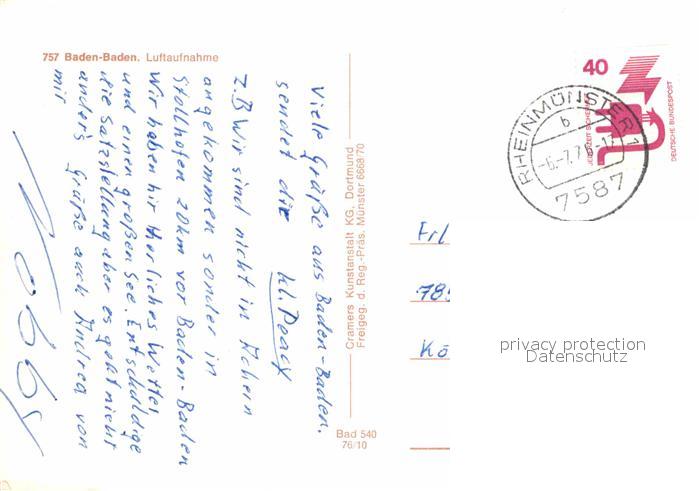 757 Baden-Baden. Luftaufnahme
Viele Grüße aus Baden-Baden.
sendet die kl. Doack
z.B Wir sind nicht in Achern
angekommen sonder in
Stollhofen 20km vor Baden-Baden
Wir haben hir Herliches Wetter
und einen großen See. Entschuldige
die Satzstellung aber es geht nicht
anders Grüße auch Andrea von
mir
Cramers Kunstanstalt KG, Dortmund
Freigeg. d. Reg.-Präs. Münster 6668/70
Bad 540
76/10
40
JEDERZEIT SICHERHEIT
DEUTSCHE BUNDESPOST
RHEINMÜNSTER 1
b
7587
Frl
78
Kö
privacy protection
Datenschutz